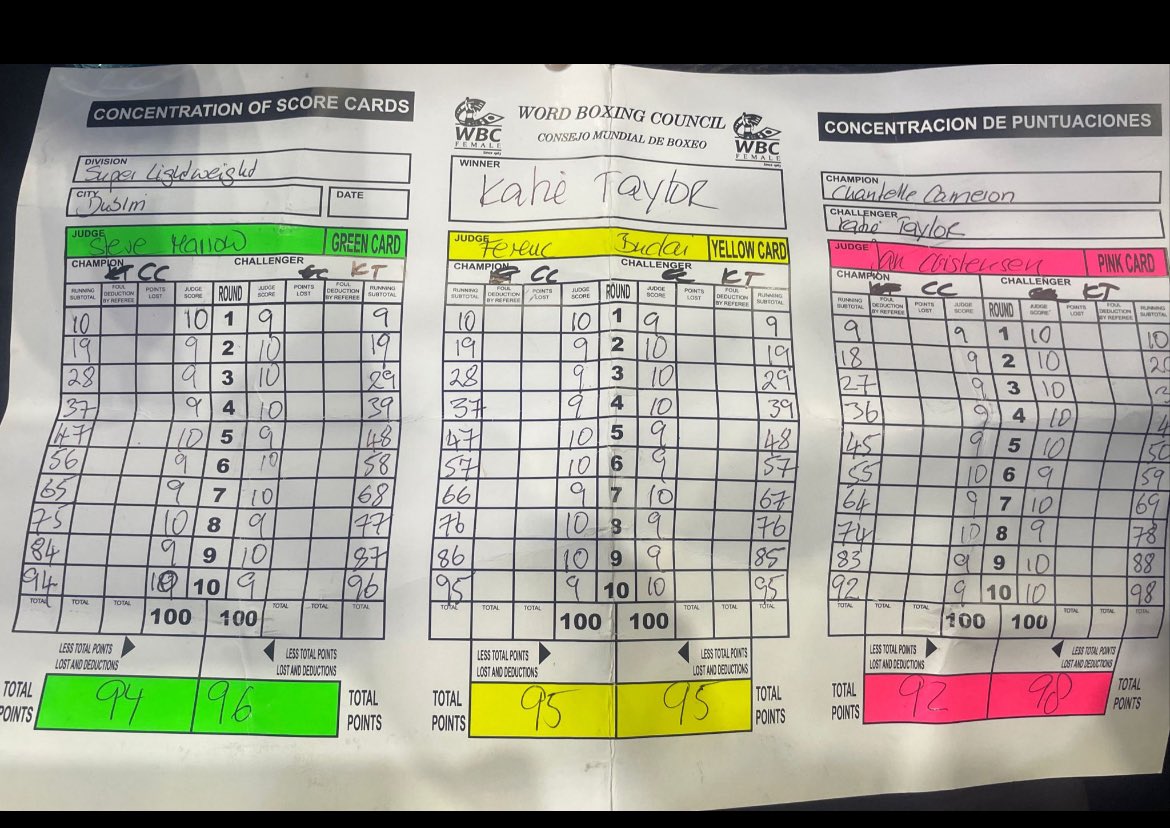 CONCENTRATION OF SCORE CARDS
DIVISION
Super Lightweight
CITY
Dublin
DATE
WBC
FEMALE
WORD BOXING COUNCIL
CONSEJO MUNDIAL DE BOXEO
WBC
FEMALE
WINNER
Katie Taylor
CONCENTRACION DE PUNTUACIONES
CHAMPION
Chantelle Cameron
CHALLENGER
Katie Taylor
JUDGE
Steve Marrow
GREEN CARD
CHAMPION CC CHALLENGER KT
RUNNING SUBTOTAL FOUL DEDUCTION BY REFEREE POINTS LOST JUDGE SCORE ROUND JUDGE SCORE POINTS LOST FOUL DEDUCTION BY REFEREE RUNNING SUBTOTAL
10 10 1 9 9
19 9 2 10 19
28 9 3 10 29
37 9 4 10 39
47 10 5 9 48
56 9 6 10 58
65 9 7 10 68
75 10 8 9 77
84 9 9 10 87
94 10 10 9 96
TOTAL TOTAL TOTAL 100 100 TOTAL TOTAL TOTAL
LESS TOTAL POINTS LOST AND DEDUCTIONS
LESS TOTAL POINTS LOST AND DEDUCTIONS
TOTAL POINTS 94 96 TOTAL POINTS
JUDGE
Ferenc Budai
YELLOW CARD
CHAMPION CC CHALLENGER KT
RUNNING SUBTOTAL FOUL DEDUCTION BY REFEREE POINTS LOST JUDGE SCORE ROUND JUDGE SCORE POINTS LOST FOUL DEDUCTION BY REFEREE RUNNING SUBTOTAL
10 10 1 9 9
19 9 2 10 19
28 9 3 10 29
37 9 4 10 39
47 10 5 9 48
57 10 6 9 57
66 9 7 10 67
76 10 8 9 76
86 10 9 9 85
95 9 10 10 95
TOTAL TOTAL TOTAL 100 100 TOTAL TOTAL TOTAL
LESS TOTAL POINTS LOST AND DEDUCTIONS
LESS TOTAL POINTS LOST AND DEDUCTIONS
TOTAL POINTS 95 95 TOTAL POINTS
JUDGE
Jan Christensen
PINK CARD
CHAMPION CC CHALLENGER KT
RUNNING SUBTOTAL FOUL DEDUCTION BY REFEREE POINTS LOST JUDGE SCORE ROUND JUDGE SCORE POINTS LOST FOUL DEDUCTION BY REFEREE RUNNING SUBTOTAL
9 9 1 10 10
18 9 2 10 20
27 9 3 10
36 9 4 10 4
45 9 5 10 50
55 10 6 9 59
64 9 7 10 69
74 10 8 9 78
83 9 9 10 88
92 9 10 10 98
TOTAL TOTAL TOTAL 100 100 TOTAL TOTAL TOTAL
LESS TOTAL POINTS LOST AND DEDUCTIONS
LESS TOTAL POINTS LOST AND DEDUCTIONS
TOTAL POINTS 92 98 TOTAL POINTS